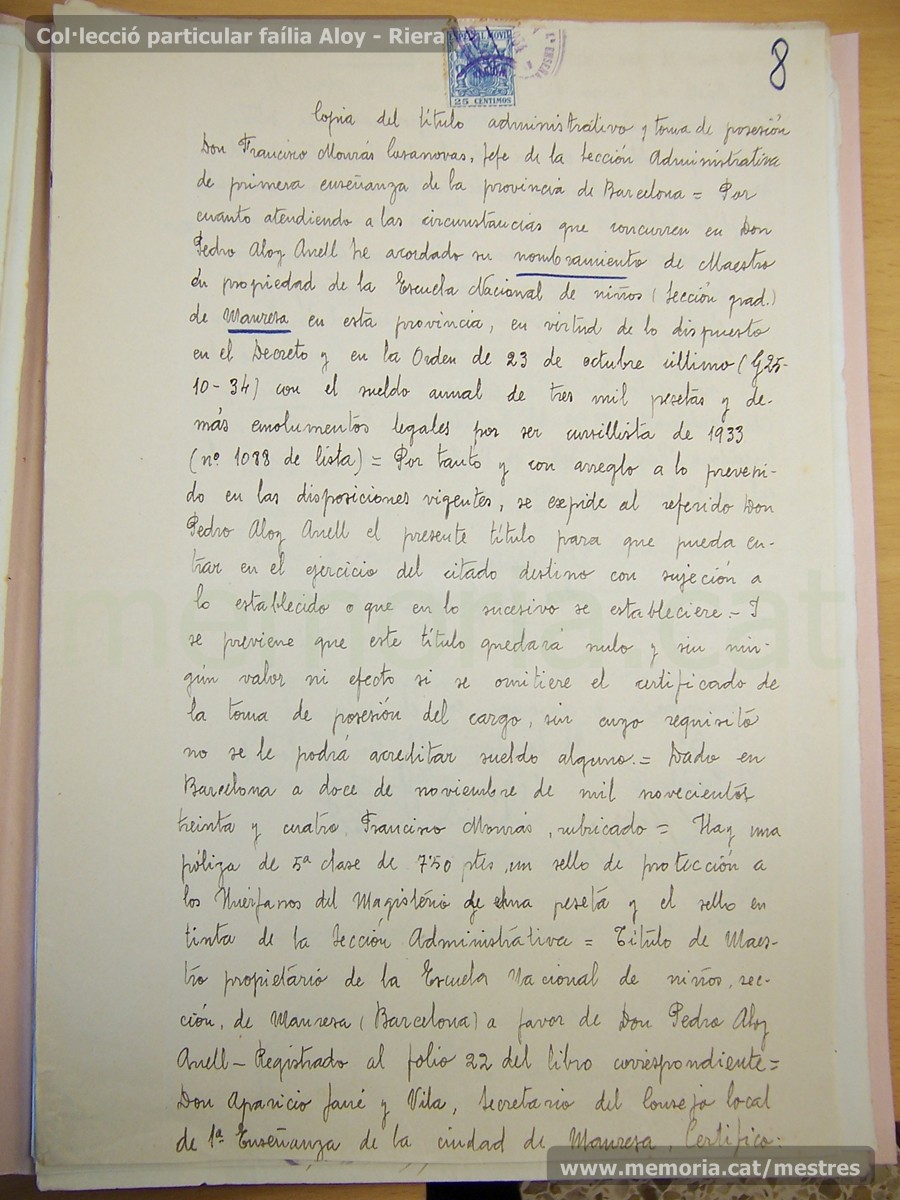 Col·lecció particular faília Aloy - Riera
8
25 CENTIMOS
1ª ENSEÑA
Copia del título administrativo y toma de posesión
Don Francisco Monrás Casanovas, Jefe de la Sección Administrativa
de primera enseñanza de la provincia de Barcelona = Por
cuanto atendiendo a las circunstancias que concurren en Don
Pedro Aloy Anell he acordado su nombramiento de Maestro
en propiedad de la Escuela Nacional de niños (Sección grad.)
de Manresa en esta provincia, en virtud de lo dispuesto
en el Decreto y en la Orden de 23 de octubre último (G 25-
10-34) con el sueldo anual de tres mil pesetas y de-
más emolumentos legales por ser cursillista de 1933
(nº 1088 de lista) = Por tanto y con arreglo a lo preveni-
do en las disposiciones vigentes, se expide al referido Don
Pedro Aloy Anell el presente título para que pueda en-
trar en el ejercicio del citado destino con sujeción a
lo establecido o que en lo sucesivo se estableciere.- I
se previene que este título quedará nulo y sin nin-
gún valor ni efecto si se omitiere el certificado de
la toma de posesión del cargo, sin cuyo requisito
no se le podrá acreditar sueldo alguno.= Dado en
Barcelona a doce de noviembre de mil novecientos
treinta y cuatro. Francisco Monrás, rubricado = Hay una
póliza de 5ª clase de 7'50 ptes, un sello de protección a
los Huérfanos del Magisterio de una peseta y el sello en
tinta de la Sección Administrativa = Título de Maes-
tro propietario de la Escuela Nacional de niños, sec-
ción, de Manresa (Barcelona) a favor de Don Pedro Aloy
Anell - Registrado al folio 22 del libro correspondiente =
Don Aparicio Jané y Vila, Secretario del Consejo local
de 1ª Enseñanza de la ciudad de Manresa, Certifico:
memoria.cat
www.memoria.cat/mestres